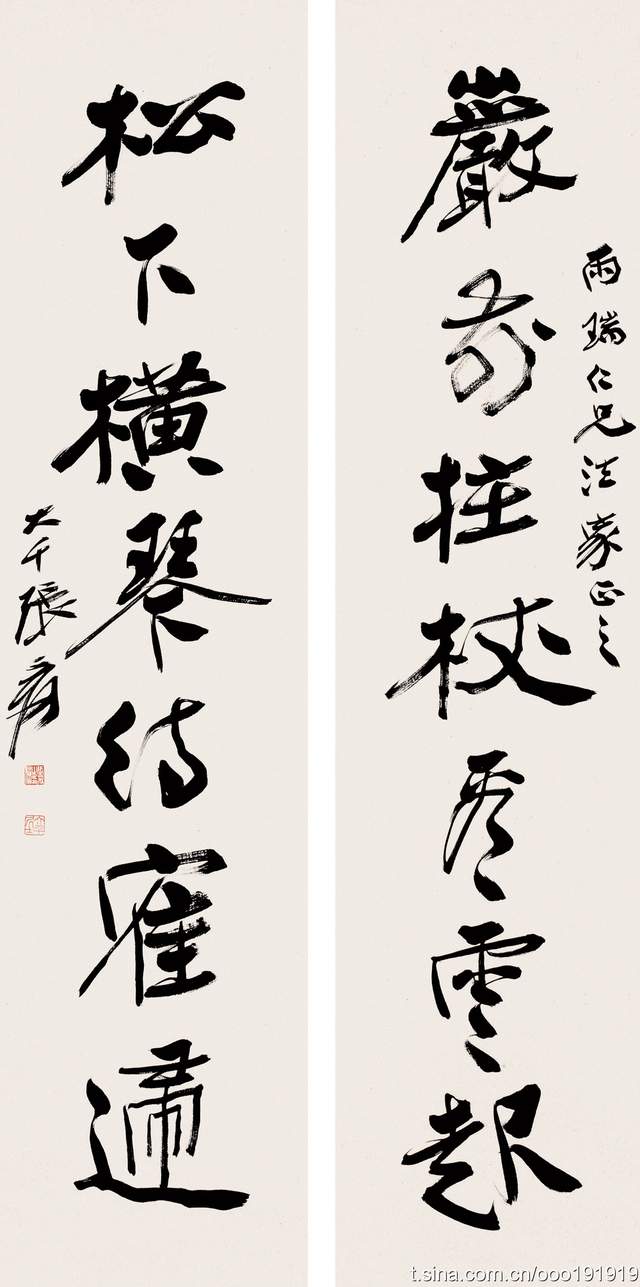 雨瑞仁兄法家正之
巖前拄杖看雲起
松下橫琴待寉歸
大千張爰
t.sina.com.cn/ooo191919